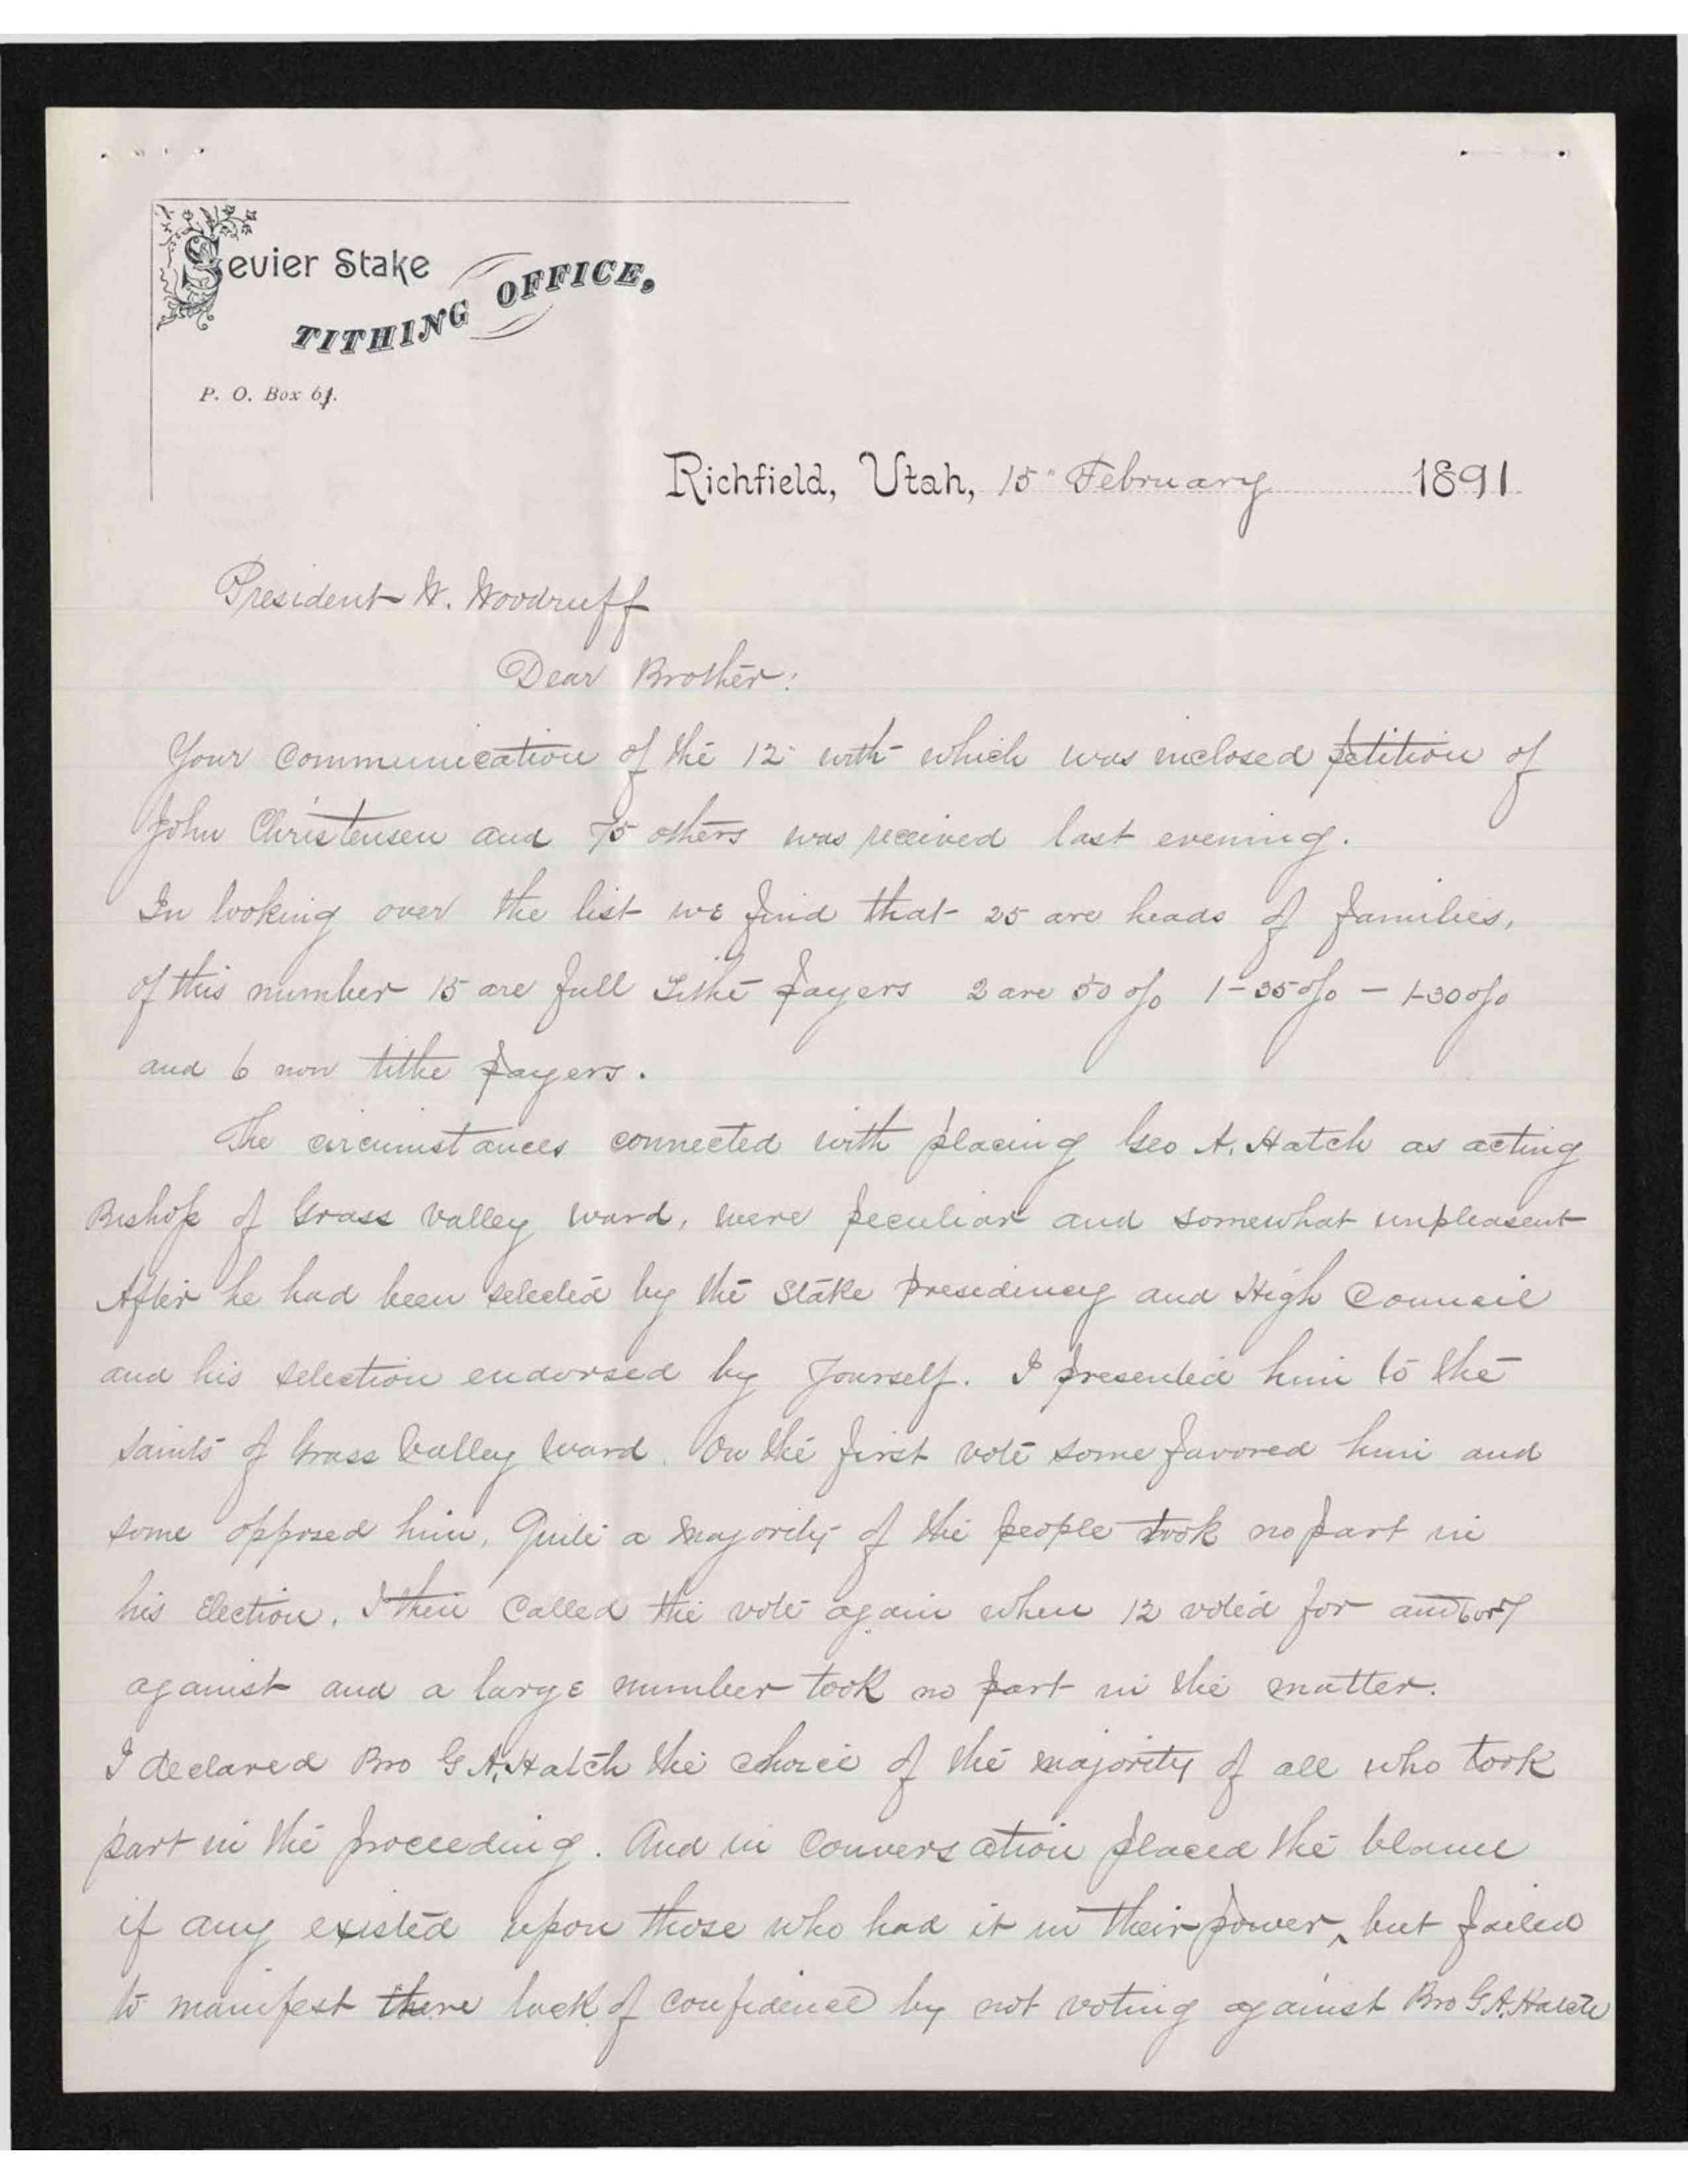 Sevier Stake
TITHING OFFICE.
P. O. Box 61.
Richfield, Utah, 15" February 1891.
President W. Woodruff
Dear Brother:
Your communication of the 12" with which was inclosed petition of
John Christensen and 75 others was received last evening.
In looking over the list we find that 25 are heads of families,
of this number 15 are full tithe payers 2 are 50 o/o 1-35 o/o - 1-30 o/o
and 6 non tithe payers.
The circumstances connected with placing Geo A. Hatch as acting
Bishop of Grass Valley ward, were peculiar and somewhat unpleasent
After he had been selected by the Stake Presidency and High Council
and his selection endorsed by Yourself. I presented him to the
saints of Grass Valley Ward. On the first vote some favored him and
some opposed him, Quite a majority of the people took no part in
his Election. I then Called the vote again when 12 voted for and 6 or 7
against and a large number took no part in the matter.
I declared Bro G. A. Hatch the choice of the majority of all who took
part in the proceeding. And in Conversation placed the blame
if any existed upon those who had it in their power, but failed
to manifest there lack of confidence by not voting against Bro G. A. Hatch